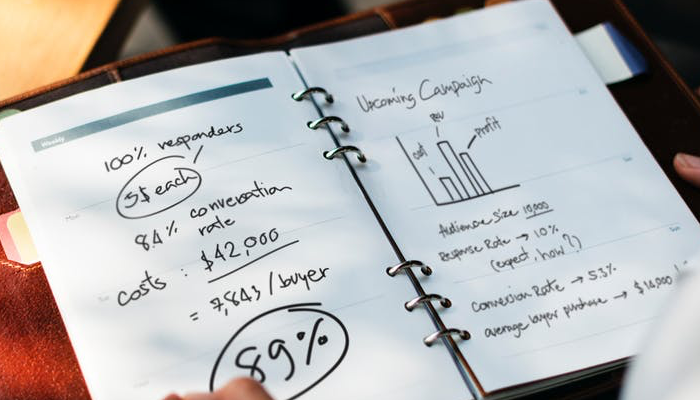 Weekly
100% responders
5$ each
84% conversation
rate
costs : $42,000
= 7,843 / buyer
89%
Upcoming Campaign
rev
cost
profit
Audience size 10,000
Response Rate → 10%
(expect. how?)
Conversion Rate → 53%
average buyer purchase → $14,000